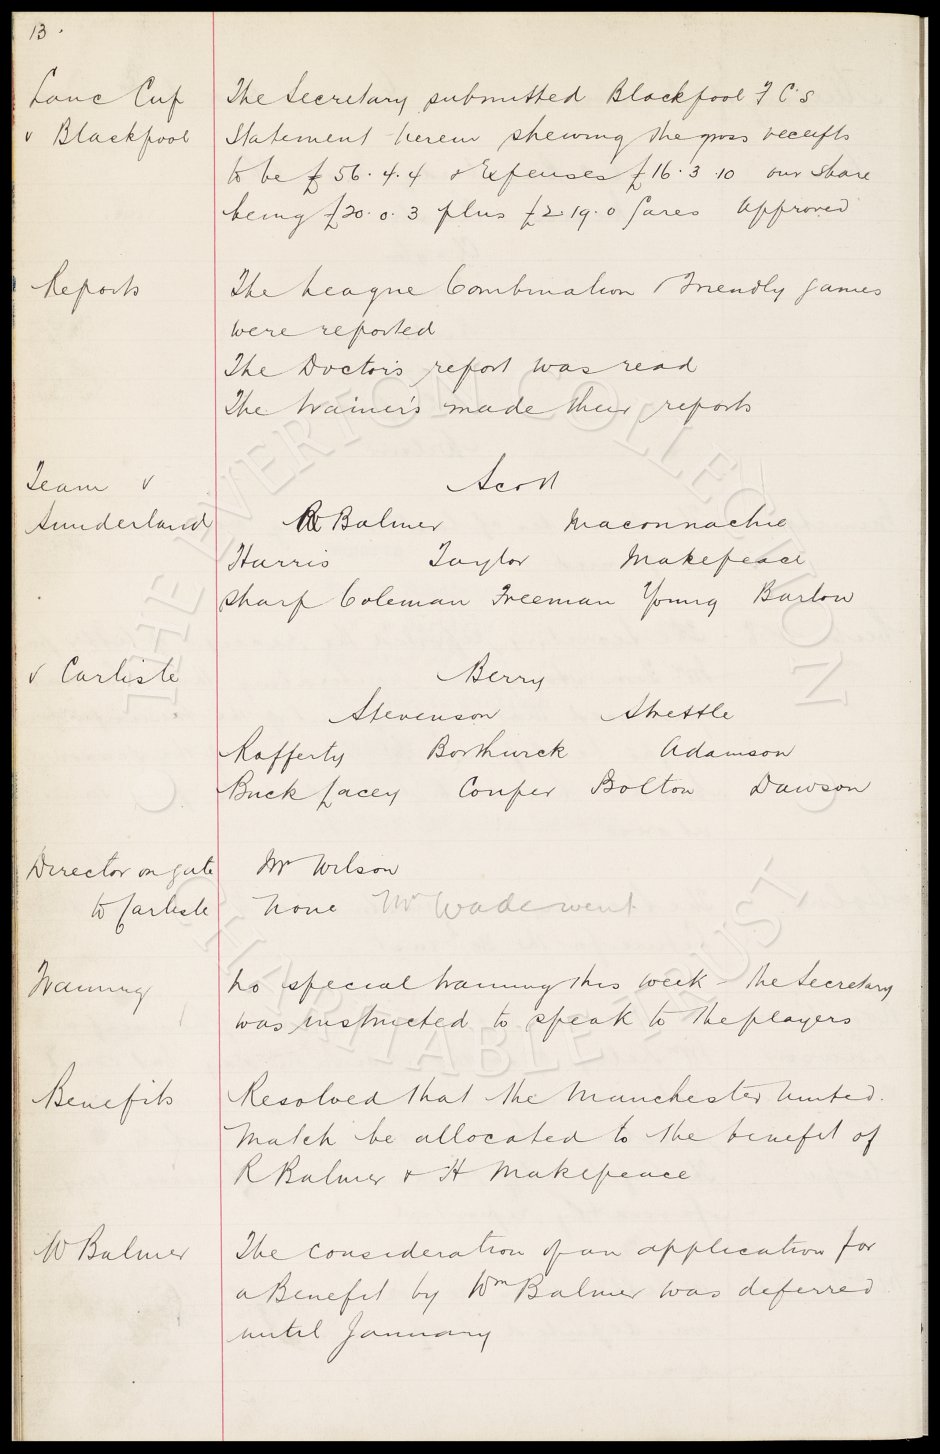 13.
Lanc Cup The Secretary submitted Blackpool F C's
v Blackpool Statement herein shewing the gross receipts
to be £56.4.4 & Expenses £16.3.10 our share
being £20.0.3 plus £2.19.0 fares approved
Reports The League Combination & Friendly games
were reported
The Doctor's report was read
The trainer's made their reports
Team v Scott
Sunderland R Balmer Maconnachie
Harris Taylor Makepeace
Sharp Coleman Freeman Young Barlow
v Carlisle Berry
Stevenson Strettle
Rafferty Borthwick Adamson
Buck Lacey Couper Bolton Dawson
Director on gate Mr Wilson
to Carlisle None Mr Wade went
Training No special training this week - the Secretary
was instructed to speak to the players
Benefits Resolved that the Manchester United.
Match be allocated to the benefit of
R Balmer & H Makepeace
W Balmer The consideration of an application for
a Benefit by Wm Balmer was deferred
until January
© THE EVERTON COLLECTION ©
CHARITABLE TRUST